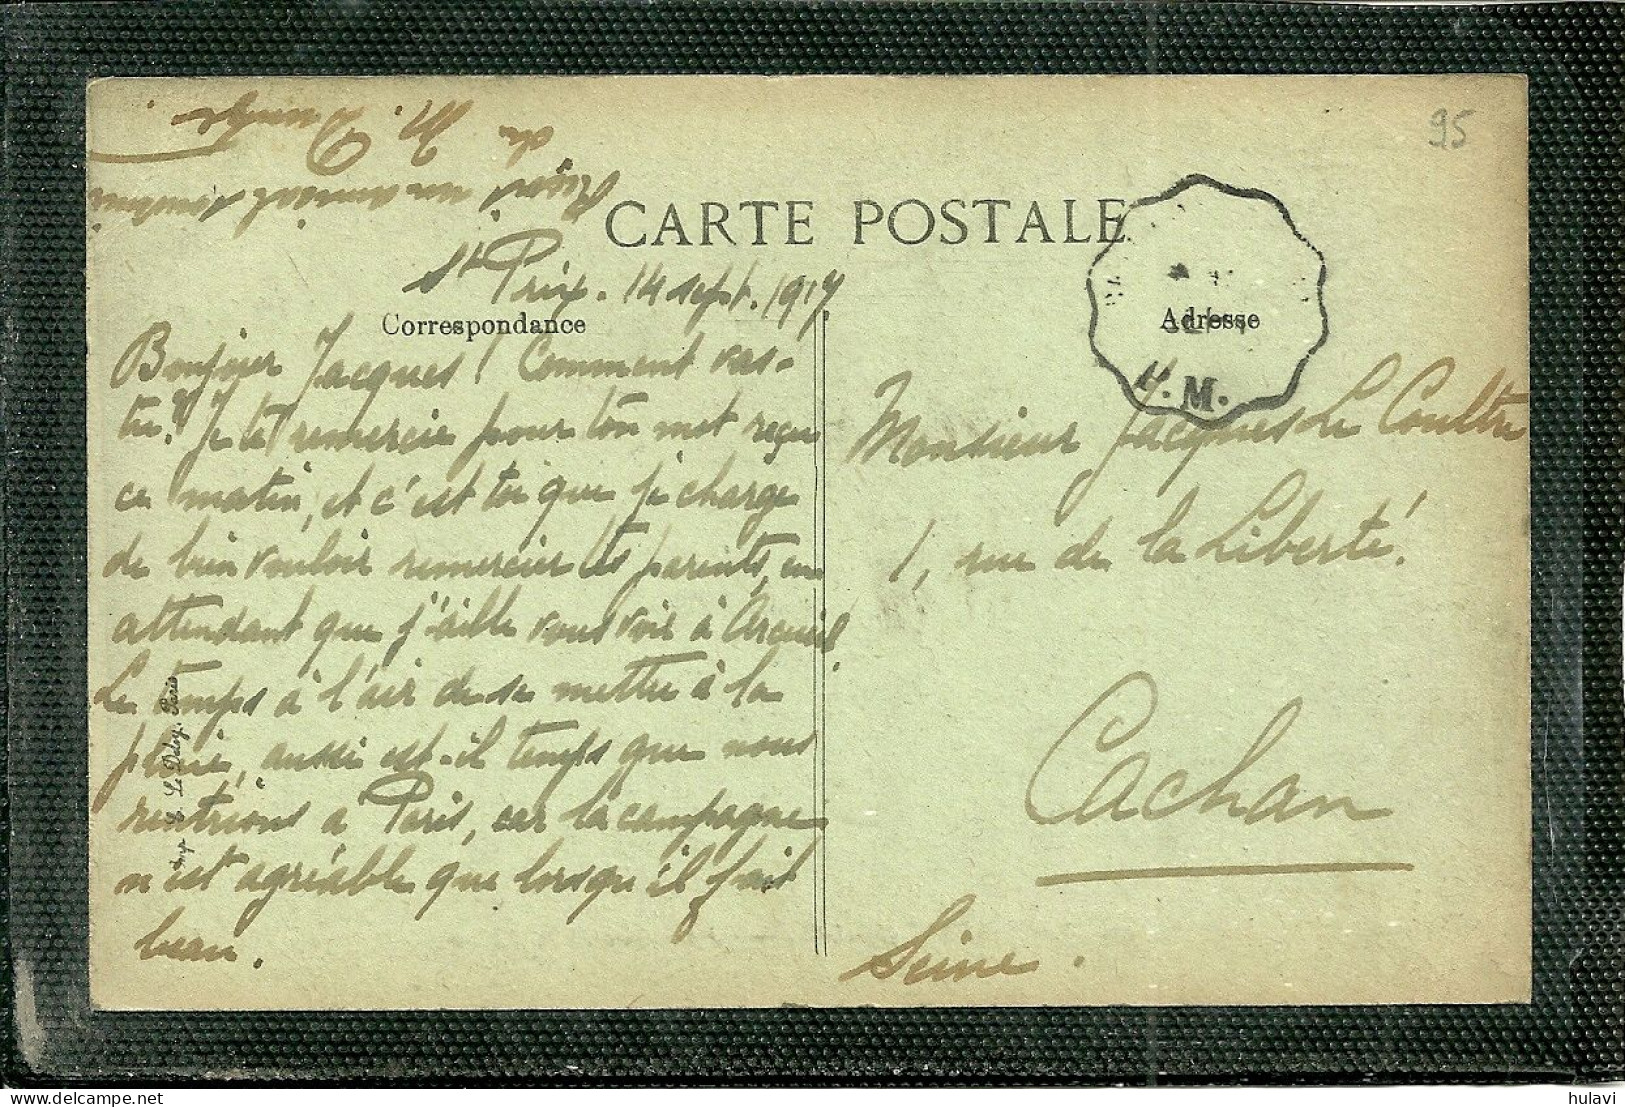 95
CARTE POSTALE
Correspondance
Adresse
St Prix. 14 sept. 1917.
Bonjour Jacques! Comment vas-
tu? Je te remercie pour ton mot reçu
ce matin, et c'est toi que je charge
de bien vouloir remercier tes parents, en
attendant que j'aille vous voir à Arcueil.
Le temps à l'air de se mettre à la
pluie, aussi est-il temps que nous
rentrions à Paris, car la campagne
n'est agréable que lorsqu'il fait
beau.
Reçois un amical
de M.
Monsieur Jacques Le Coultre
1, rue de la Liberté.
Cachan
Seine.
M.
Imp. E. Le Deley, Paris
hulavi